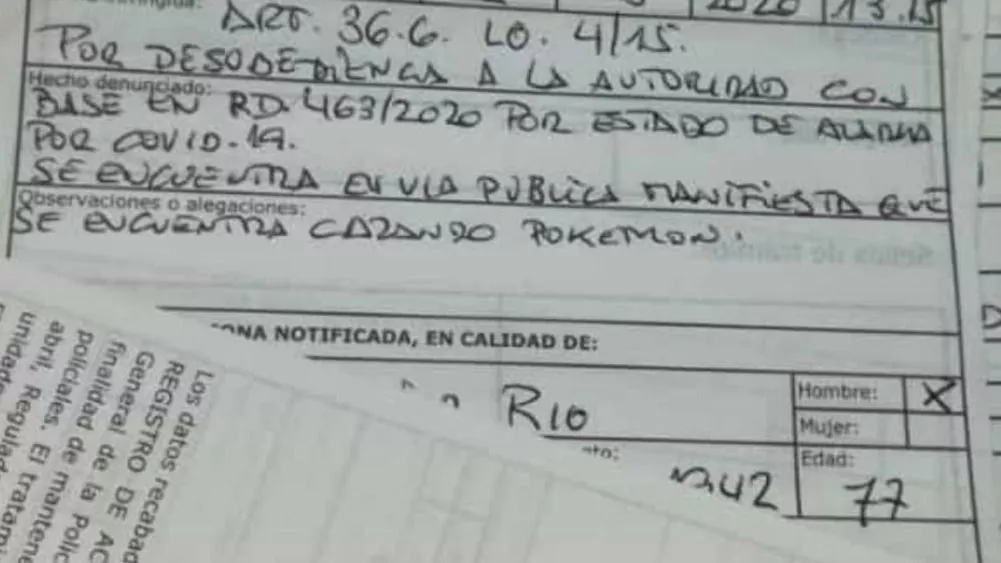 infringida:
2020 13.15
ART. 36.6. LO. 4/15.
POR DESOBEDIENCIA A LA AUTORIDAD CON
Hecho denunciado:
BASE EN RD. 463/2020 POR ESTADO DE ALARMA
POR COVID-19.
SE ENCUENTRA EN VIA PUBLICA MANIFIESTA QUE
Observaciones o alegaciones:
SE ENCUENTRA CAZANDO POKEMON.
ONA NOTIFICADA, EN CALIDAD DE:
RIO
Hombre: X
Mujer:
nto:
42
Edad:
77
Los datos recabad
REGISTRO DE AC
General de la Polic
finalidad de
policiales. El tratami
abril, Regulad
unidade